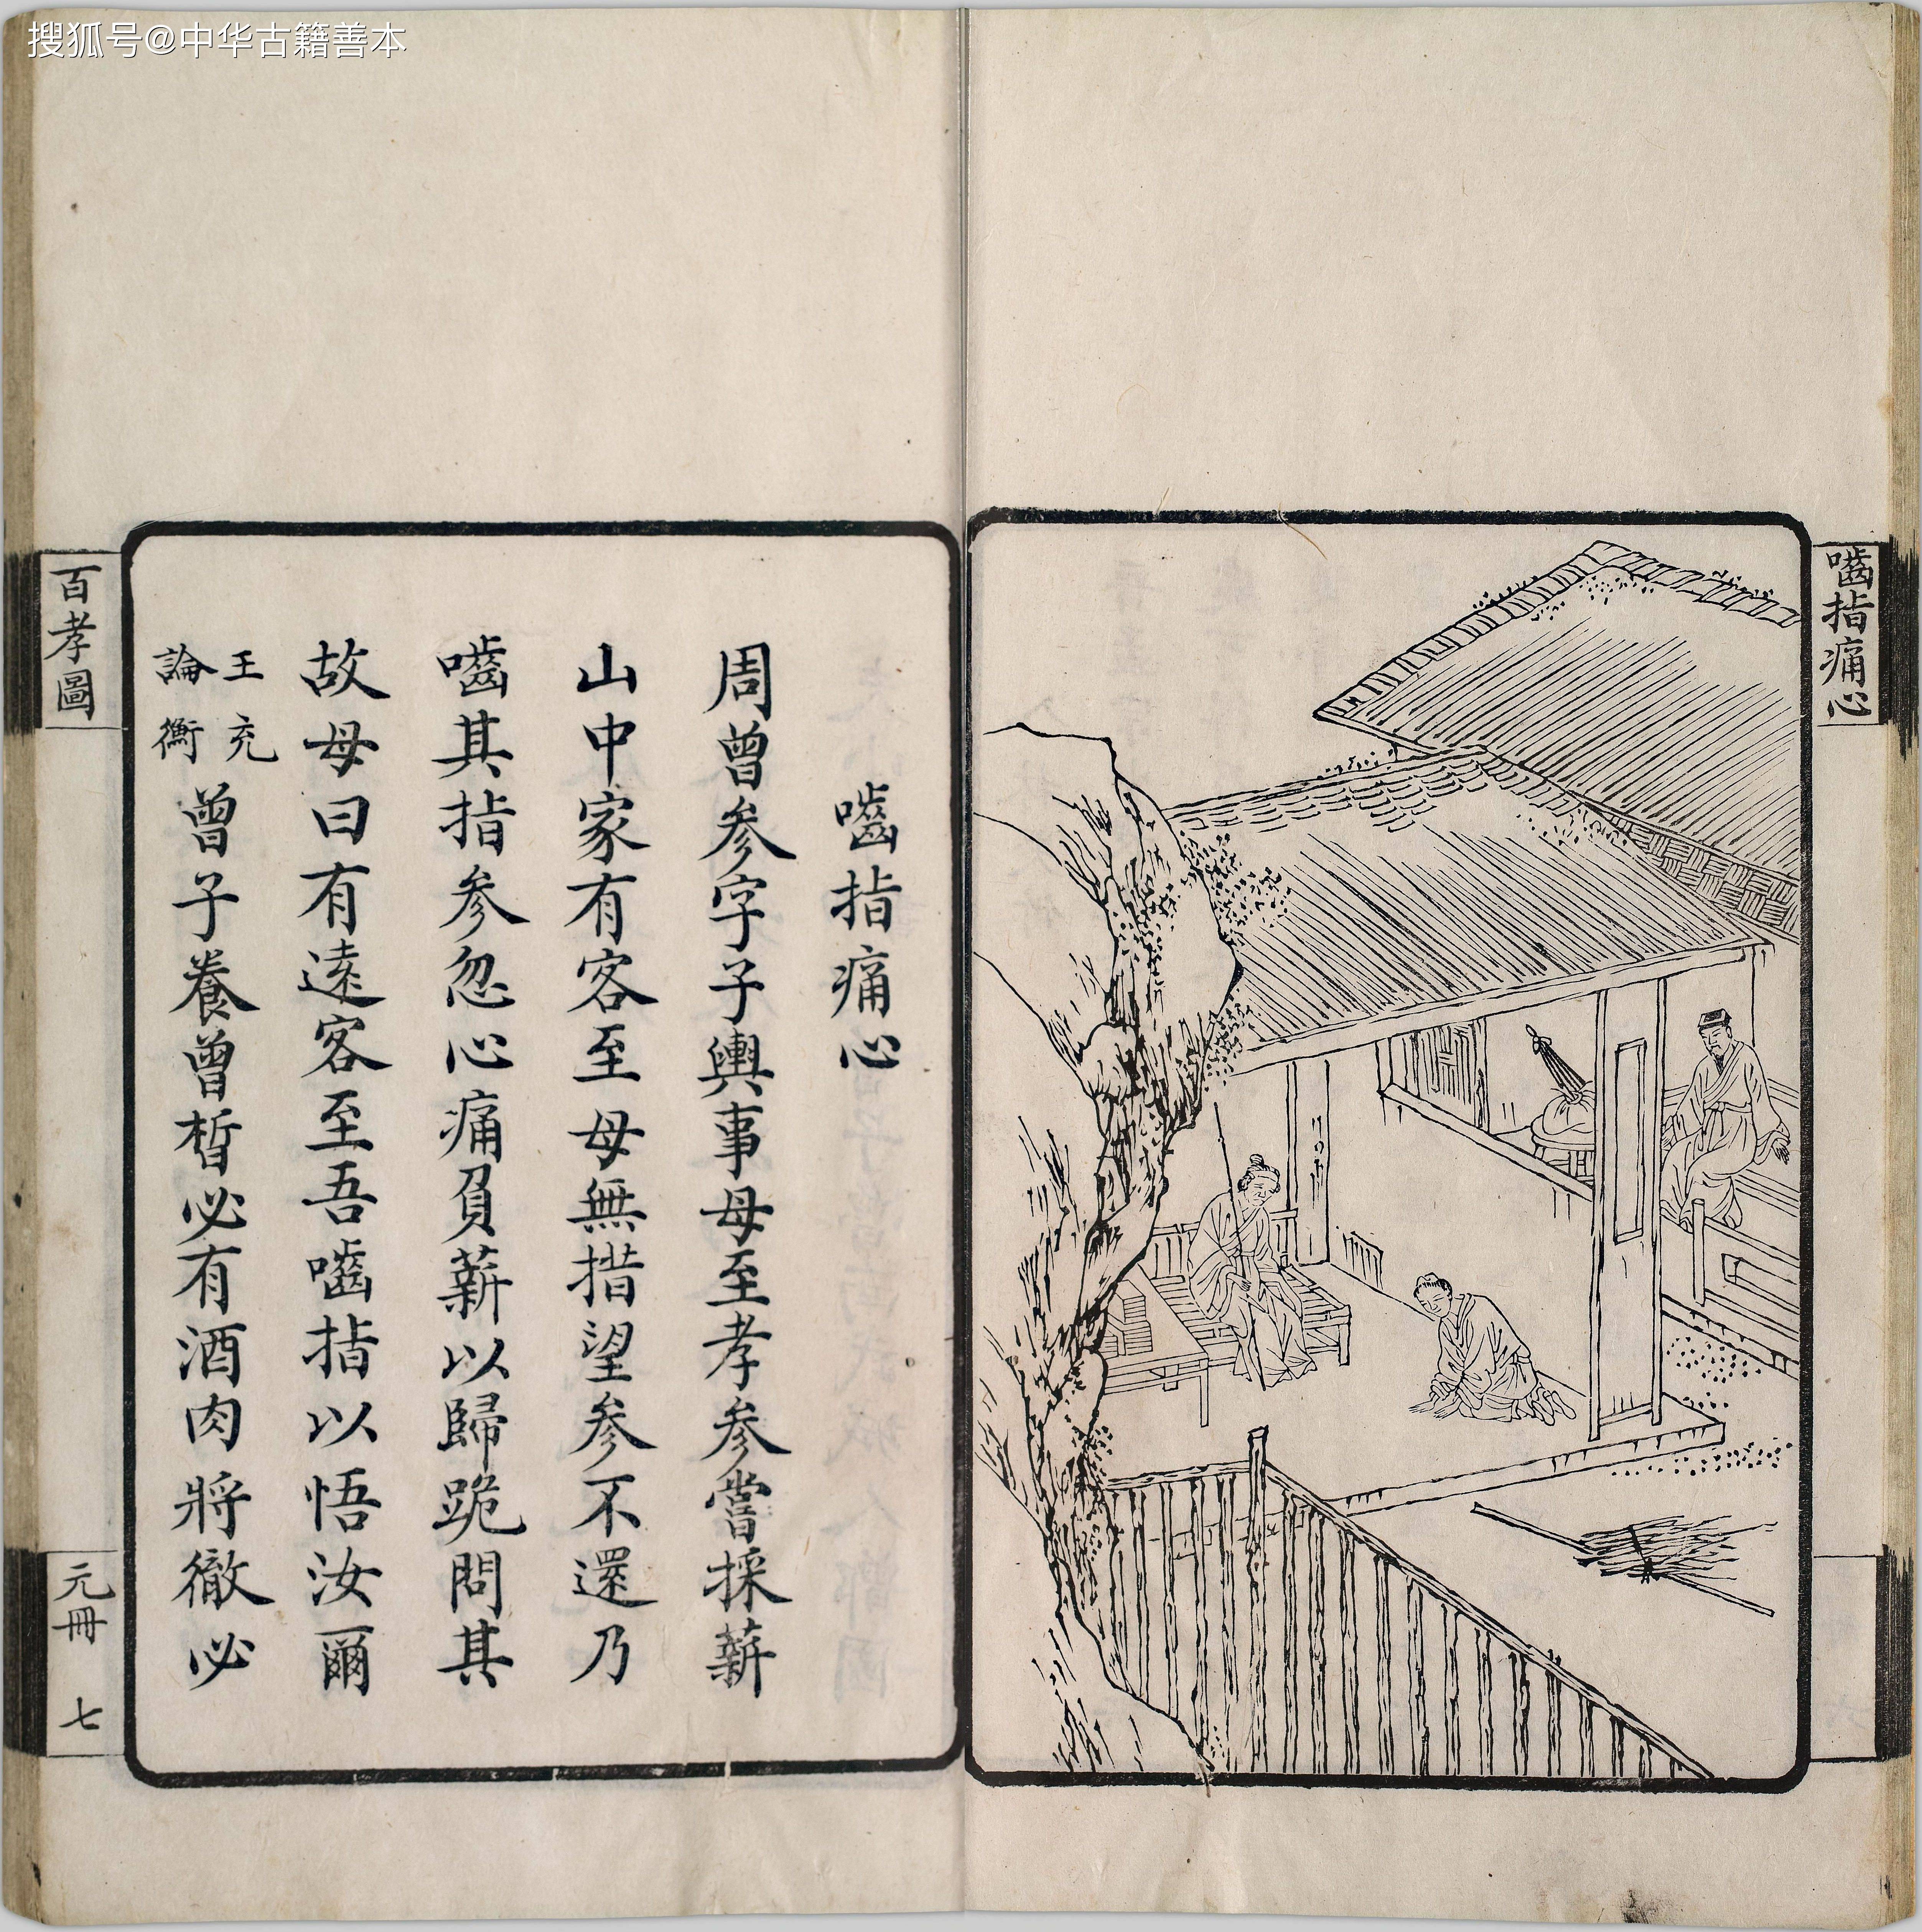 搜狐号@中华古籍善本
嚙指痛心
嚙指痛心
周曾参字子輿事母至孝参嘗採薪
山中家有客至母無措望参不還乃
嚙其指参忽心痛負薪以歸跪問其
故母曰有遠客至吾嚙指以悟汝爾
王充
論衡
曾子養曾晳必有酒肉將徹必
百孝圖
元冊 七